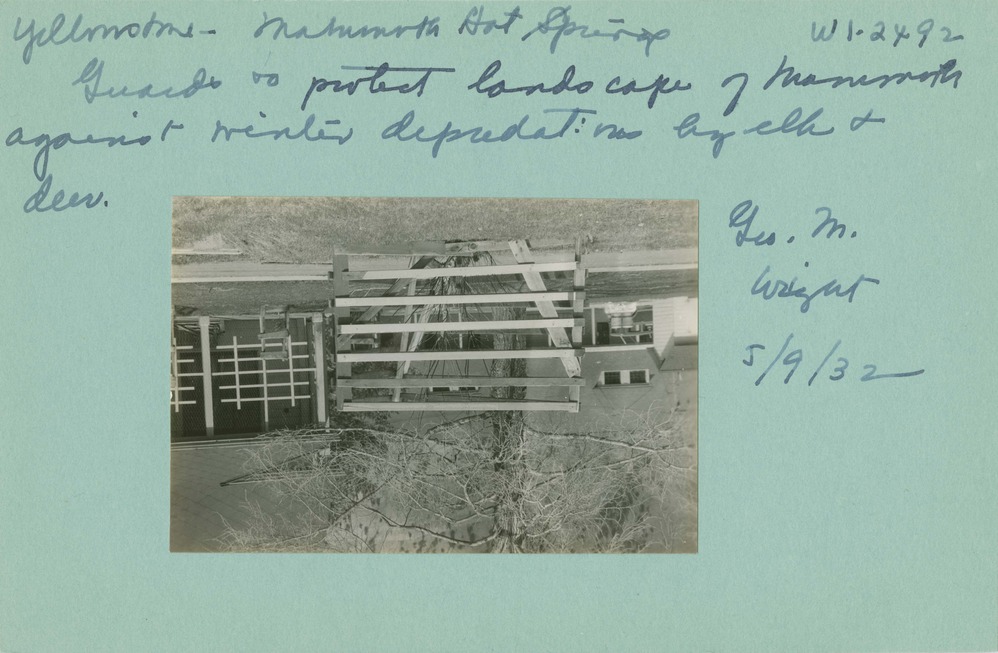 Yellowstone - Mammoth Hot Springs WI-2492
Guards to protect landscape of Mammoth
against winter depredations by elk +
deer.
Geo. M.
Wright
5/9/32